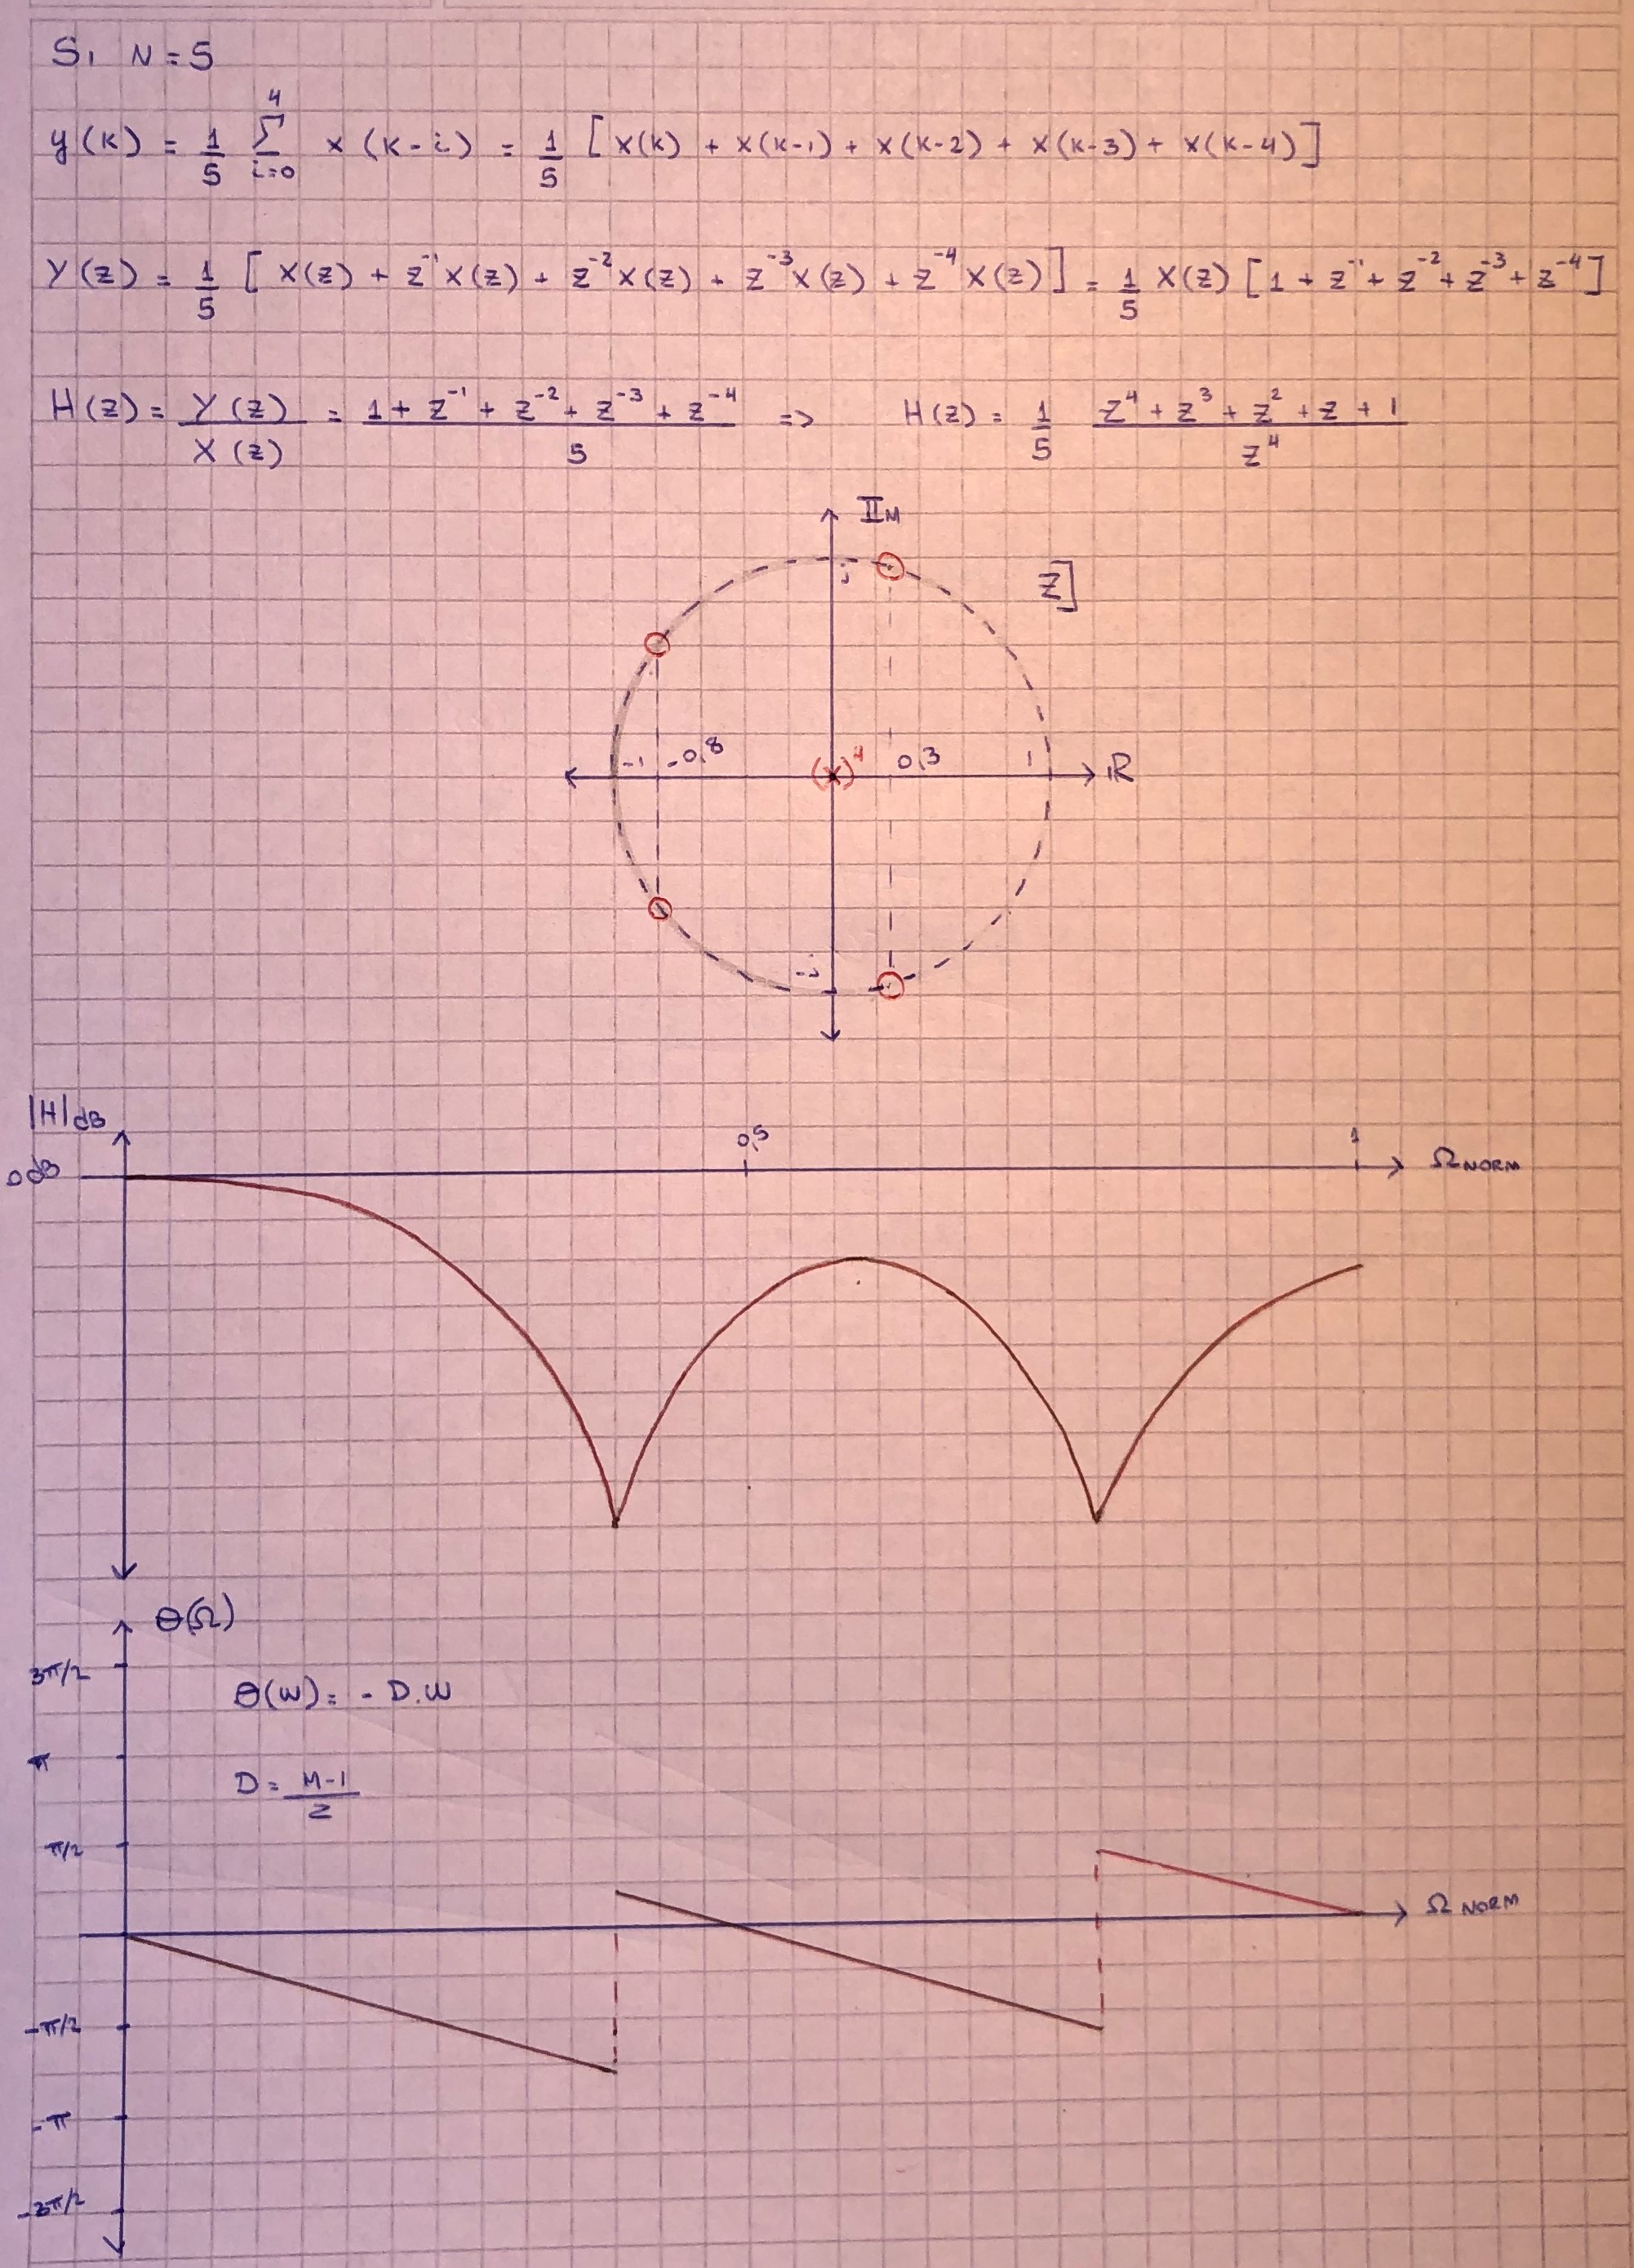 Si N=5
y(k) = 1/5 Σ_{i=0}^{4} x(k-i) = 1/5 [x(k) + x(k-1) + x(k-2) + x(k-3) + x(k-4)]
Y(z) = 1/5 [X(z) + z^-1 X(z) + z^-2 X(z) + z^-3 X(z) + z^-4 X(z)] = 1/5 X(z) [1 + z^-1 + z^-2 + z^-3 + z^-4]
H(z) = Y(z)/X(z) = (1 + z^-1 + z^-2 + z^-3 + z^-4)/5 => H(z) = 1/5 (z^4 + z^3 + z^2 + z + 1)/z^4
IIm
j
Z]
-1 -0,8 (x)^4 0,3 1 IR
-j
|H|dB
0,5 1
0dB ΩNORM
θ(Ω)
3π/2
θ(w) = - D.w
π
D = (M-1)/2
π/2
ΩNORM
-π/2
-π
-3π/2